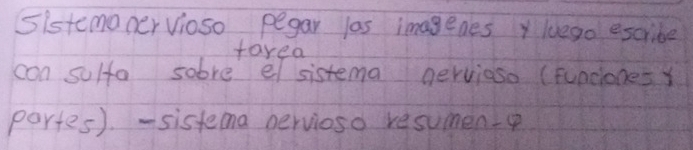 Sistema nervioso pegar las imagenes y luego escribe
tarea
consulta sobre el sistema nervioso (Funciones y
partes). - sistema nervioso resumen-